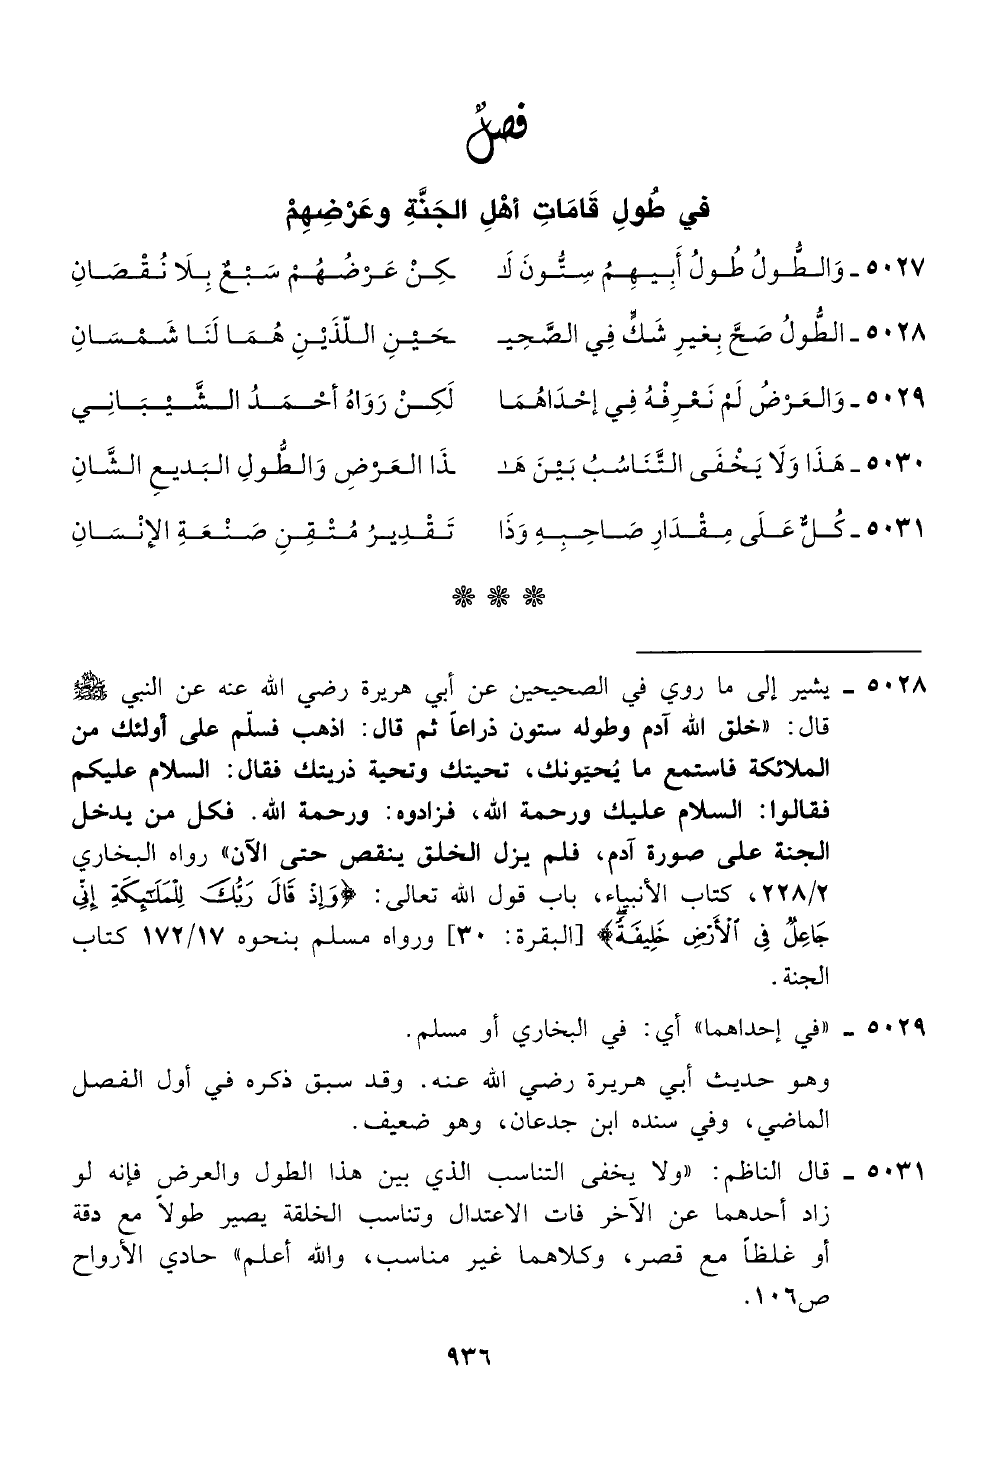 فصلٌ
في طُولِ قَامَاتِ أهْلِ الجَنَّةِ وعَرْضِهِمْ
٥٠٢٧ - وَالطُّولُ طُولُ أَبِيهِمُ سِتُّونَ لَـ ـكِنْ عَرْضُهُمْ سَبْعٌ بِلَا نُقْصَانِ
٥٠٢٨ - الطُّولُ صَحَّ بِغيرِ شَكٍّ فِي الصَّحِيـ ـحَيْنِ اللَّذَيْنِ هُمَا لَنَا شَمْسَانِ
٥٠٢٩ - وَالعَرْضُ لَمْ نَعْرِفْهُ فِي إحْدَاهُمَا لَكِنْ رَوَاهُ أحْمَدُ الشَّيْبَانِي
٥٠٣٠ - هَذَا وَلَا يَخْفَى التَّنَاسُبُ بَيْنَ هَـ ـذَا العَرْضِ وَالطُّولِ البَدِيعِ الشَّانِ
٥٠٣١ - كُلٌّ عَلَى مِقْدَارِ صَاحِبِهِ وَذَا تَقْدِيرُ مُتْقِنِ صَنْعَةِ الإنْسَانِ
٥٠٢٨ - يشير إلى ما روي في الصحيحين عن أبي هريرة رضي الله عنه عن النبي ﷺ
قال: «خلق الله آدم وطوله ستون ذراعاً ثم قال: اذهب فسلّم على أولئك من
الملائكة فاستمع ما يُحيّونك، تحيتك وتحية ذريتك فقال: السلام عليكم
فقالوا: السلام عليك ورحمة الله، فزادوه: ورحمة الله. فكل من يدخل
الجنة على صورة آدم، فلم يزل الخلق ينقص حتى الآن» رواه البخاري
٢٢٨/٢، كتاب الأنبياء، باب قول الله تعالى: ﴿وَإِذْ قَالَ رَبُّكَ لِلْمَلَٰٓئِكَةِ إِنِّى
جَاعِلٌ فِى ٱلْأَرْضِ خَلِيفَةً﴾ [البقرة: ٣٠] ورواه مسلم بنحوه ١٧٢/١٧ كتاب
الجنة.
٥٠٢٩ - «في إحداهما» أي: في البخاري أو مسلم.
وهو حديث أبي هريرة رضي الله عنه. وقد سبق ذكره في أول الفصل
الماضي، وفي سنده ابن جدعان، وهو ضعيف.
٥٠٣١ - قال الناظم: «ولا يخفى التناسب الذي بين هذا الطول والعرض فإنه لو
زاد أحدهما عن الآخر فات الاعتدال وتناسب الخلقة يصير طولاً مع دقة
أو غلظاً مع قصر، وكلاهما غير مناسب، والله أعلم» حادي الأرواح
ص١٠٦.
٩٣٦